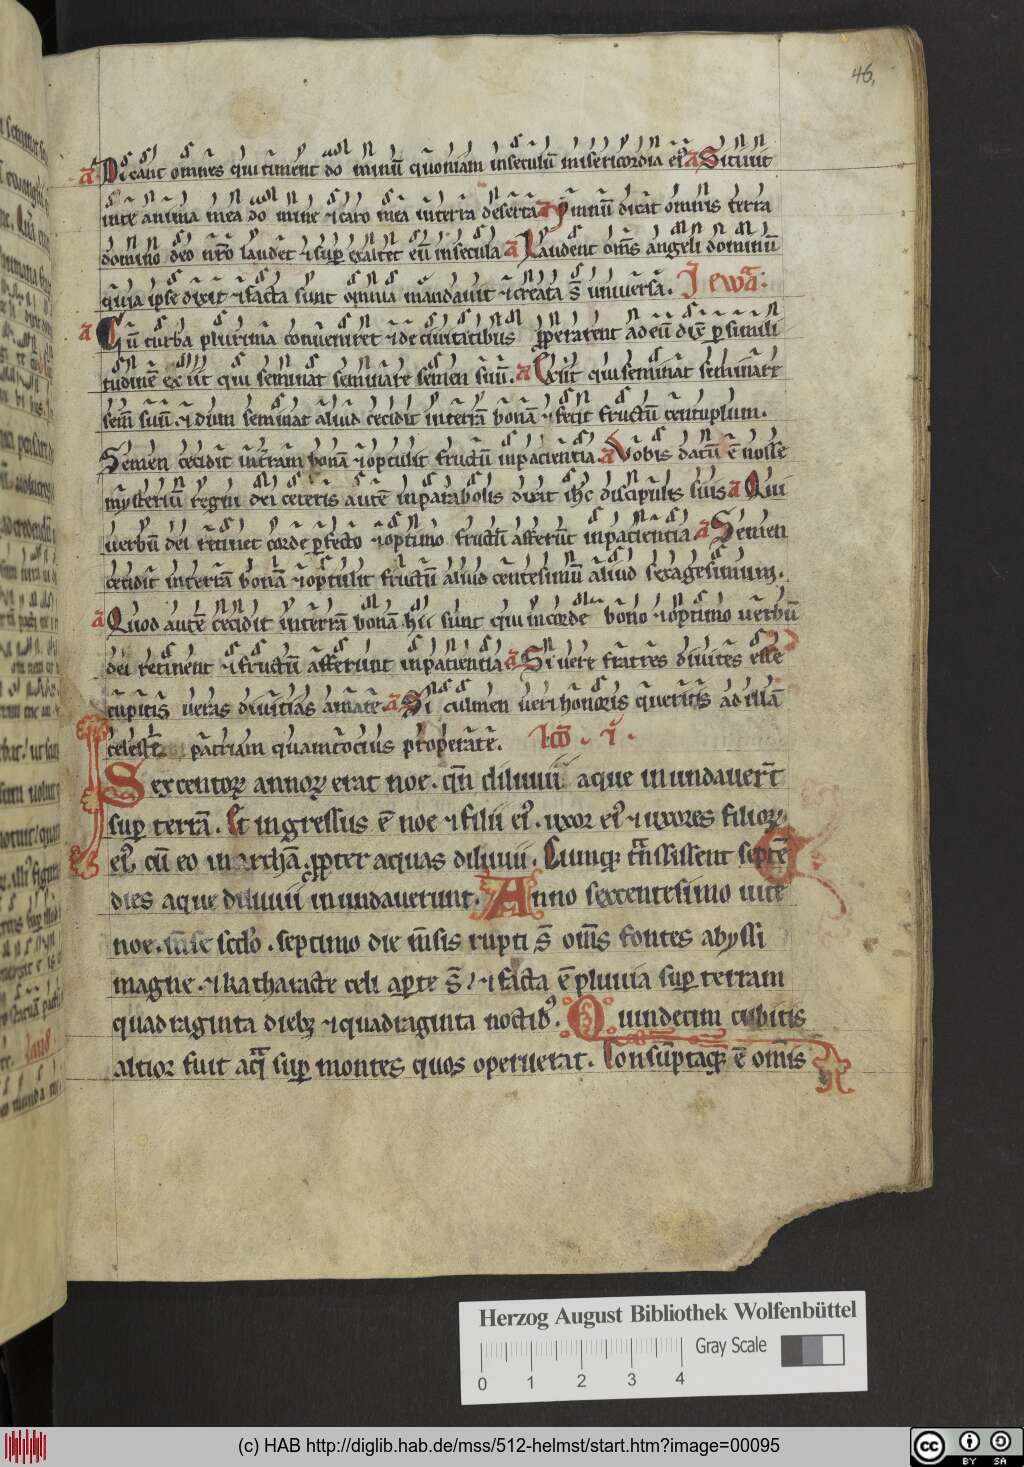 46.
a Dicant omnes qui timent do minū quoniam inseculū misericordia eiꝰ a Sitiuit
inte anima mea do mine ⁊ caro mea interra deserta a ymnū dicat omnis terra
domino deo nr̄o laudet ⁊ suꝑ exaltet eū insecula a Laudent om̄s angeli dominū
quia ipse dixit ⁊ facta sunt omnia mandauit ⁊ creata s̄ uniuersa.
a Cū turba plurima conueniret ⁊ de ciuitatibus ꝓperarent ad eū dix̄ ꝑ simili
tudinē exiit qui seminat seminare semen suū. a Exiit qui seminat seminare
sem̄ suū. ⁊ dum seminat aliud cecidit interrā bonā ⁊ fecit fructū centuplum.
Semen cecidit int̄ram bonā ⁊ optulit fructū inpacientia. a Vobis datū ē nosse
mysteriū regni dei ceteris autē inparabolis dixit ihc̄ discipulis suis a Qui
uerbū dei retinet corde ꝑfecto ⁊ optimo fructū afferūt inpacientia a Semen
cecidit interrā bonā ⁊ optulit fructū aliud centesimū aliud sexagesimum.
a Quod autē cecidit interrā bonā hii sunt qui incorde bono ⁊ optimo uerbū
dei retinent ⁊ fructū afferunt inpacientia a Si uere fratres diuites esse
cupitis ueras diuitias amate. a Si culmen ueri honoris queritis ad illā
celestē patriam quamtocius properate. lcō. i.
Sexcentoꝝ annoꝝ erat noe. qn̄ diluuii aque inundauer̄t
suꝑ terrā. Et ingressus ē noe ⁊ filii eiꝰ. uxor eiꝰ ⁊ uxores filioꝝ
eiꝰ cū eo in archā. ꝓpter aquas diluuii. Cumqꝫ tnsissent septē
dies aque diluuii inundauerunt. Anno sexcentesimo uite
noe. mense scd̄o. septimo die m̄sis rupti s̄ om̄s fontes abyssi
magne. ⁊ katharacte celi aꝑte s̄. ⁊ facta ē pluuia suꝑ terram
quadraginta diebꝫ ⁊ quadraginta noctibꝰ. Quindecim cubitis
altior fuit aq̄ suꝑ montes quos operuerat. Consūptaqꝫ ē om̄is
Herzog August Bibliothek Wolfenbüttel
Gray Scale
0 1 2 3 4
(c) HAB http://diglib.hab.de/mss/512-helmst/start.htm?image=00095
cc BY SA